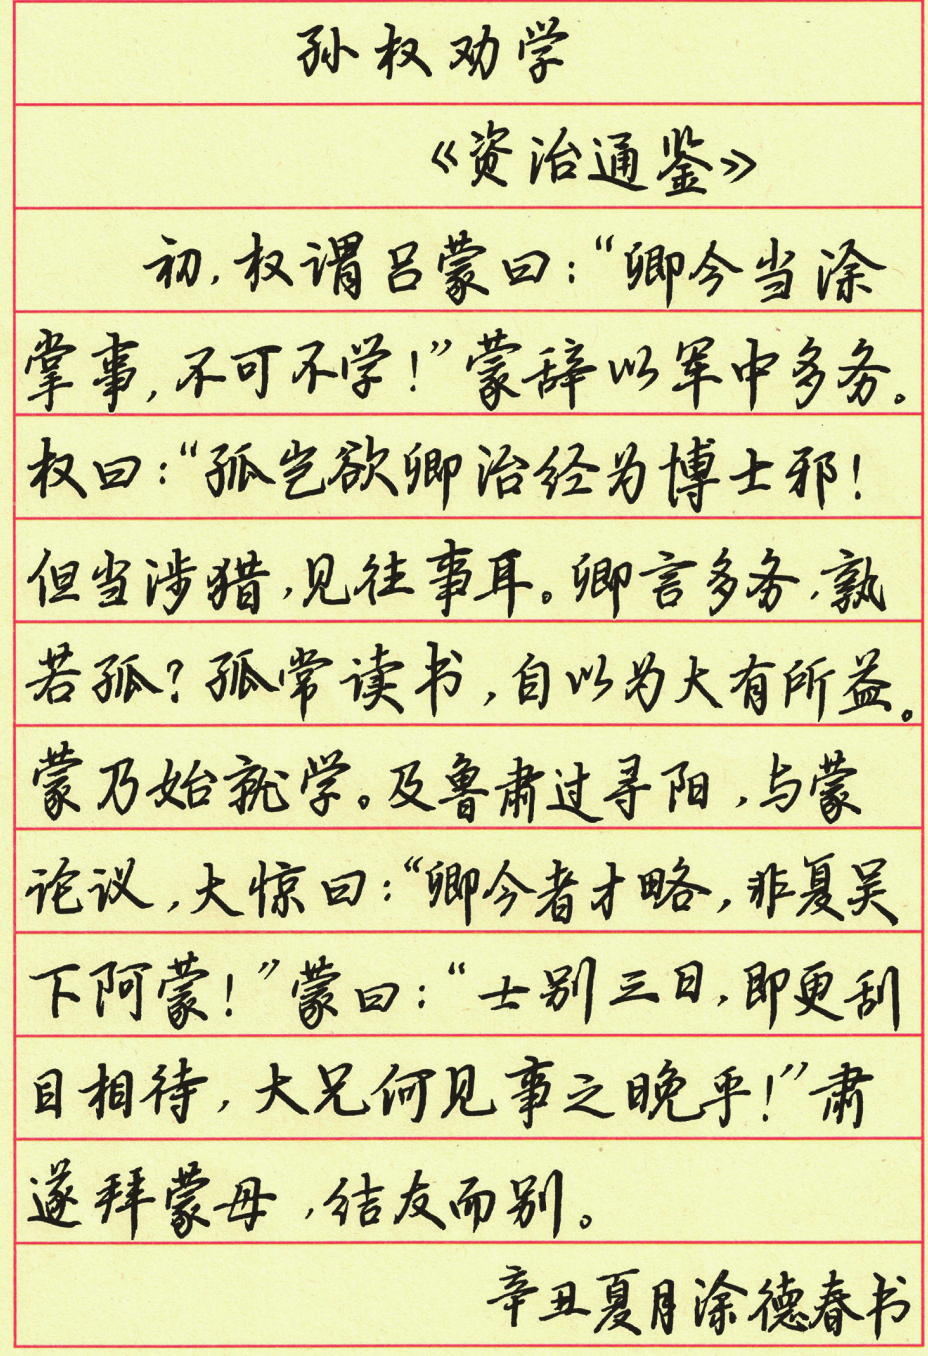 孙权劝学
《资治通鉴》
初,权谓吕蒙曰:“卿今当涂
掌事,不可不学!”蒙辞以军中多务。
权曰:“孤岂欲卿治经为博士邪!
但当涉猎,见往事耳。卿言多务,孰
若孤?孤常读书,自以为大有所益。
蒙乃始就学。及鲁肃过寻阳,与蒙
论议,大惊曰:“卿今者才略,非复吴
下阿蒙!”蒙曰:“士别三日,即更刮
目相待,大兄何见事之晚乎!”肃
遂拜蒙母,结友而别。
辛丑夏月涂德春书